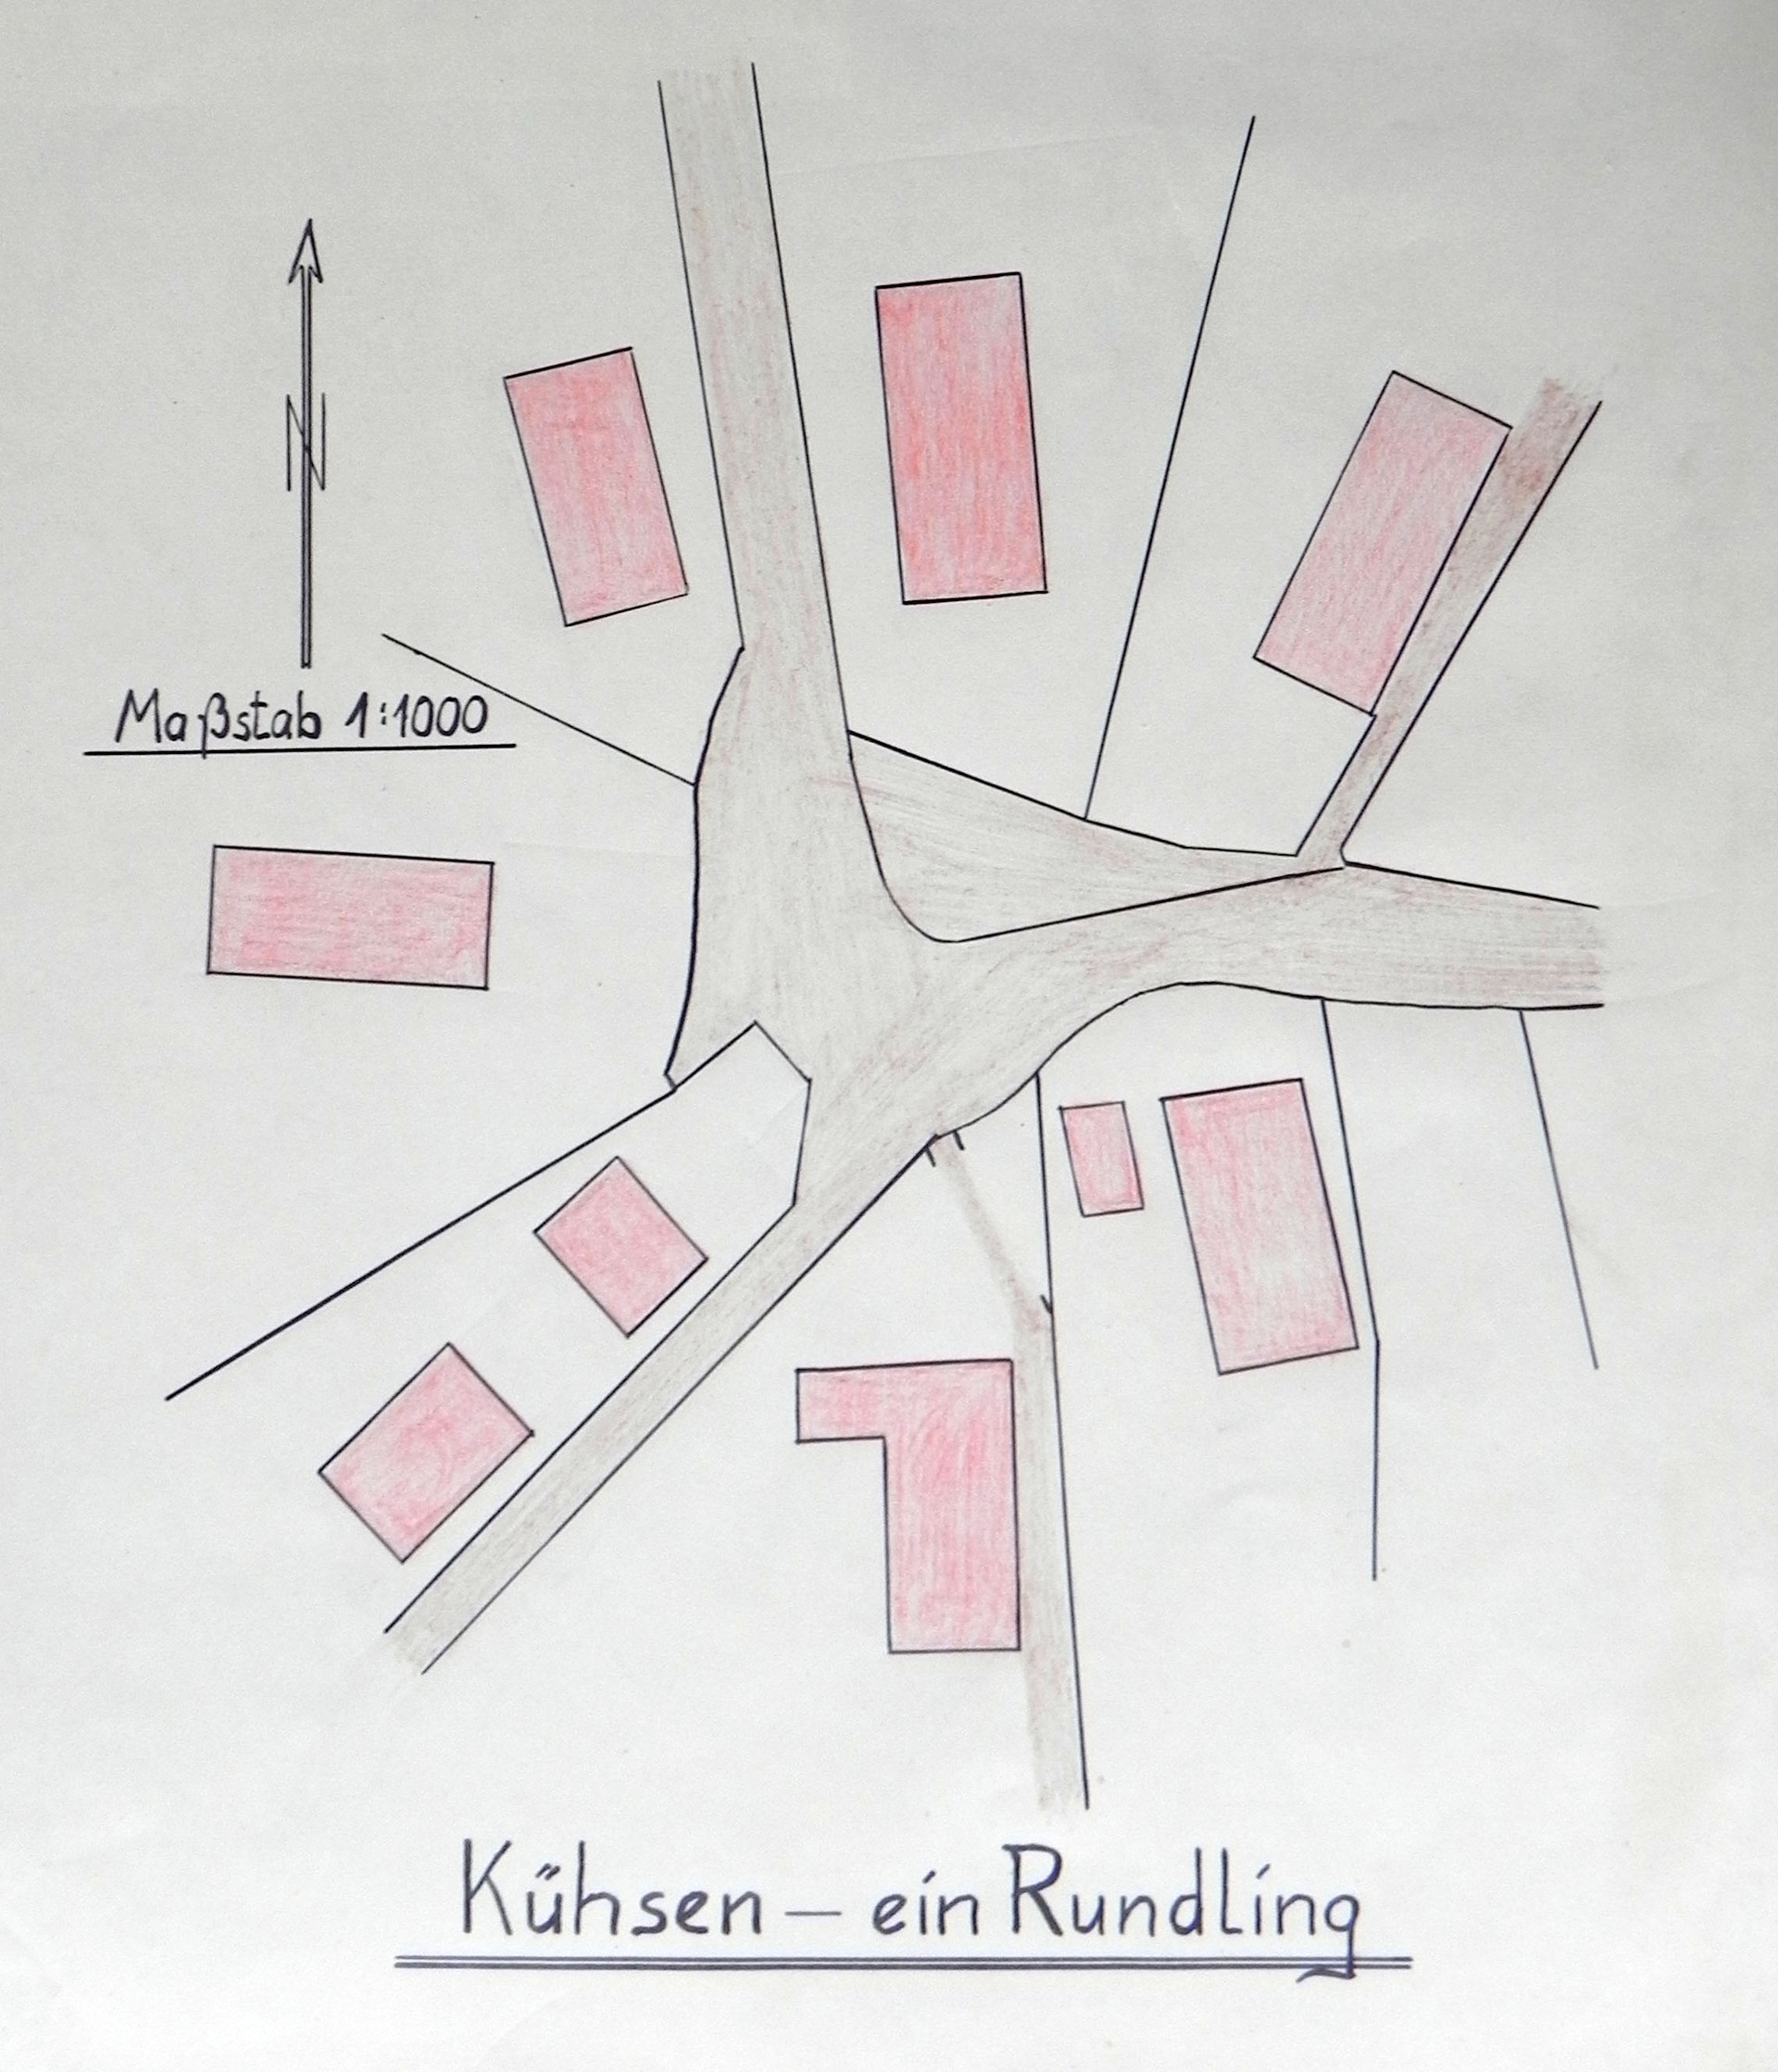 N
Maßstab 1:1000
Kühsen – ein Rundling